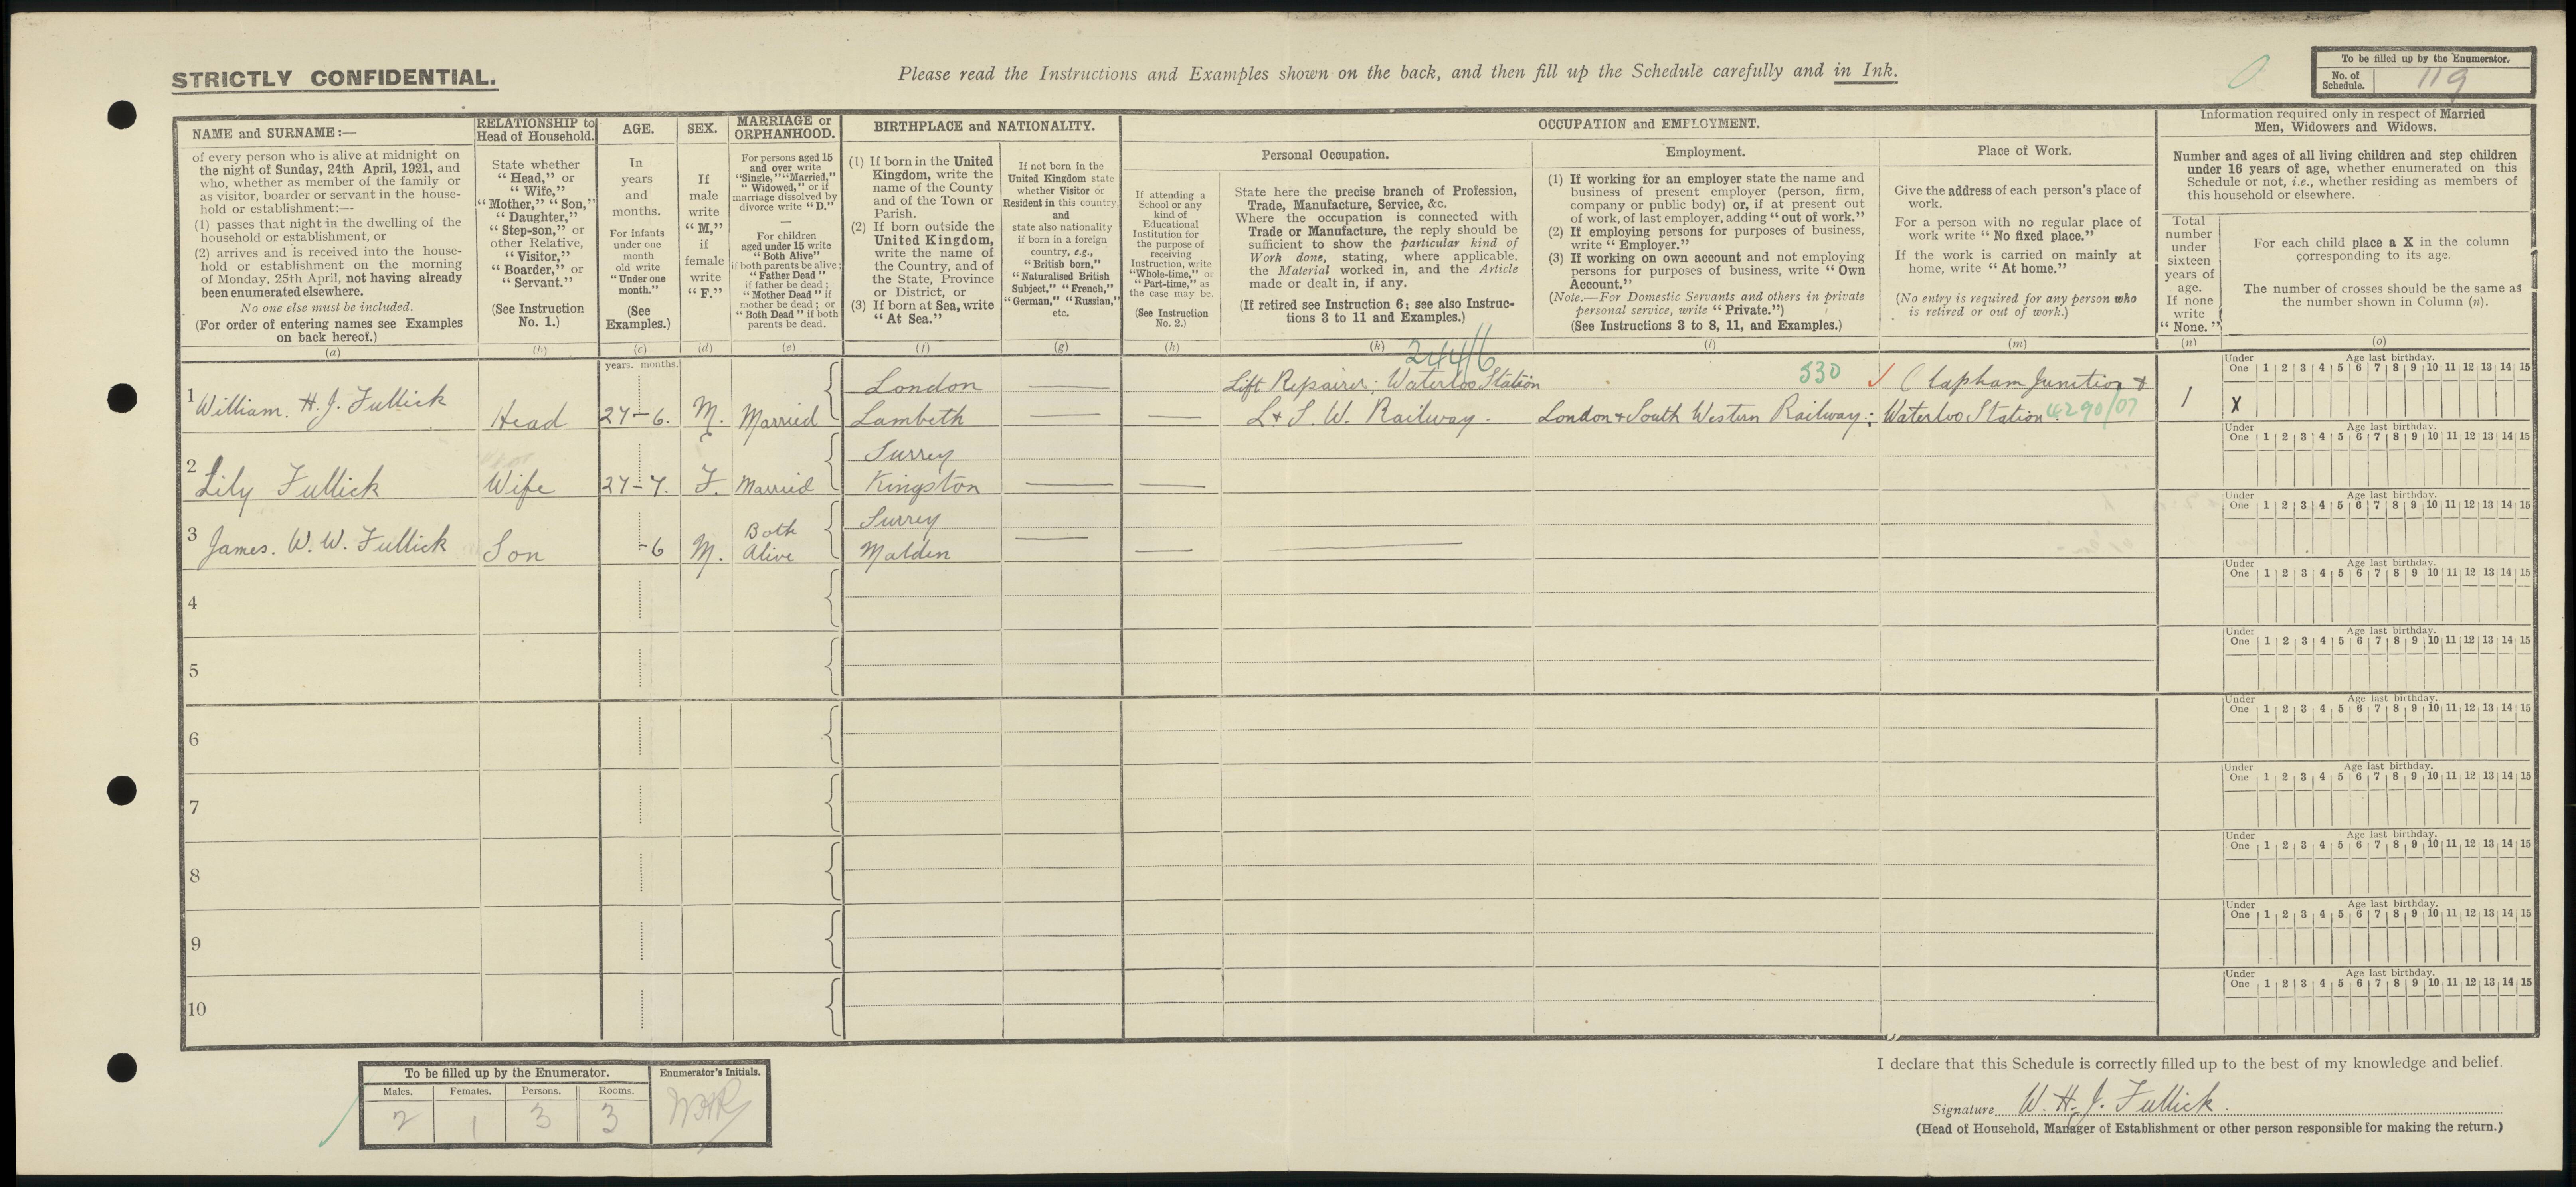 STRICTLY CONFIDENTIAL.
Please read the Instructions and Examples shown on the back, and then fill up the Schedule carefully and in Ink.
To be filled up by the Enumerator.
No. of Schedule. 119
NAME and SURNAME:—
of every person who is alive at midnight on
the night of Sunday, 24th April, 1921, and
who, whether as member of the family or
as visitor, boarder or servant in the house-
hold or establishment:—
(1) passes that night in the dwelling of the
household or establishment, or
(2) arrives and is received into the house-
hold or establishment on the morning
of Monday, 25th April, not having already
been enumerated elsewhere.
No one else must be included.
(For order of entering names see Examples
on back hereof.)
(a)
RELATIONSHIP to
Head of Household.
State whether
"Head," or
"Wife,"
"Mother," "Son,"
"Daughter,"
"Step-son," or
other Relative,
"Visitor,"
"Boarder," or
"Servant."
(See Instruction
No. 1.)
(b)
AGE.
In
years
and
months.
For infants
under one
month
old write
"Under one
month."
(See
Examples.)
(c)
SEX.
If
male
write
"M,"
if
female
write
"F."
(d)
MARRIAGE or
ORPHANHOOD.
For persons aged 15
and over write
"Single," "Married,"
"Widowed," or if
marriage dissolved by
divorce write "D."
—
For children
aged under 15 write
"Both Alive"
if both parents be alive;
"Father Dead"
if father be dead;
"Mother Dead" if
mother be dead; or
"Both Dead" if both
parents be dead.
(e)
BIRTHPLACE and NATIONALITY.
(1) If born in the United
Kingdom, write the
name of the County
and of the Town or
Parish.
(2) If born outside the
United Kingdom,
write the name of
the Country, and of
the State, Province
or District, or
(3) If born at Sea, write
"At Sea."
(f)
If not born in the
United Kingdom state
whether Visitor or
Resident in this country,
and
state also nationality
if born in a foreign
country, e.g.,
"British born,"
"Naturalised British
Subject," "French,"
"German," "Russian,"
etc.
(g)
OCCUPATION and EMPLOYMENT.
If attending a
School or any
kind of
Educational
Institution for
the purpose of
receiving
Instruction, write
"Whole-time," or
"Part-time," as
the case may be.
(See Instruction
No. 2.)
(h)
Personal Occupation.
State here the precise branch of Profession,
Trade, Manufacture, Service, &c.
Where the occupation is connected with
Trade or Manufacture, the reply should be
sufficient to show the particular kind of
Work done, stating, where applicable,
the Material worked in, and the Article
made or dealt in, if any.
(If retired see Instruction 6; see also Instruc-
tions 3 to 11 and Examples.)
(k)
Employment.
(1) If working for an employer state the name and
business of present employer (person, firm,
company or public body) or, if at present out
of work, of last employer, adding "out of work."
(2) If employing persons for purposes of business,
write "Employer."
(3) If working on own account and not employing
persons for purposes of business, write "Own
Account."
(Note.—For Domestic Servants and others in private
personal service, write "Private.")
(See Instructions 3 to 8, 11, and Examples.)
(l)
Place of Work.
Give the address of each person's place of
work.
For a person with no regular place of
work write "No fixed place."
If the work is carried on mainly at
home, write "At home."
(No entry is required for any person who
is retired or out of work.)
(m)
Information required only in respect of Married
Men, Widowers and Widows.
Number and ages of all living children and step children
under 16 years of age, whether enumerated on this
Schedule or not, i.e., whether residing as members of
this household or elsewhere.
Total
number
under
sixteen
years of
age.
If none
write
"None."
(n)
For each child place a X in the column
corresponding to its age.
The number of crosses should be the same as
the number shown in Column (n).
(o)
years. months.
1 William. H. J. Fullick Head 27-6. M. Married London Lambeth
Lift Repairer; Waterloo Station
L & S. W. Railway.
London & South Western Railway:
Clapham Junction &
Waterloo Station
244/6
530
4290/07
1 X
Under One 1 2 3 4 5 6 7 8 9 10 11 12 13 14 15
Age last birthday.
2 Lily Fullick Wife 27-7. F. Married Surrey Kingston
Under One 1 2 3 4 5 6 7 8 9 10 11 12 13 14 15
Age last birthday.
3 James. W. W. Fullick Son -6 M. Both Alive Surrey Malden
Under One 1 2 3 4 5 6 7 8 9 10 11 12 13 14 15
Age last birthday.
4
Under One 1 2 3 4 5 6 7 8 9 10 11 12 13 14 15
Age last birthday.
5
Under One 1 2 3 4 5 6 7 8 9 10 11 12 13 14 15
Age last birthday.
6
Under One 1 2 3 4 5 6 7 8 9 10 11 12 13 14 15
Age last birthday.
7
Under One 1 2 3 4 5 6 7 8 9 10 11 12 13 14 15
Age last birthday.
8
Under One 1 2 3 4 5 6 7 8 9 10 11 12 13 14 15
Age last birthday.
9
Under One 1 2 3 4 5 6 7 8 9 10 11 12 13 14 15
Age last birthday.
10
Under One 1 2 3 4 5 6 7 8 9 10 11 12 13 14 15
Age last birthday.
To be filled up by the Enumerator.
Males. Females. Persons. Rooms.
2 1 3 3
Enumerator's Initials.
I declare that this Schedule is correctly filled up to the best of my knowledge and belief.
Signature W. H. J. Fullick.
(Head of Household, Manager of Establishment or other person responsible for making the return.)